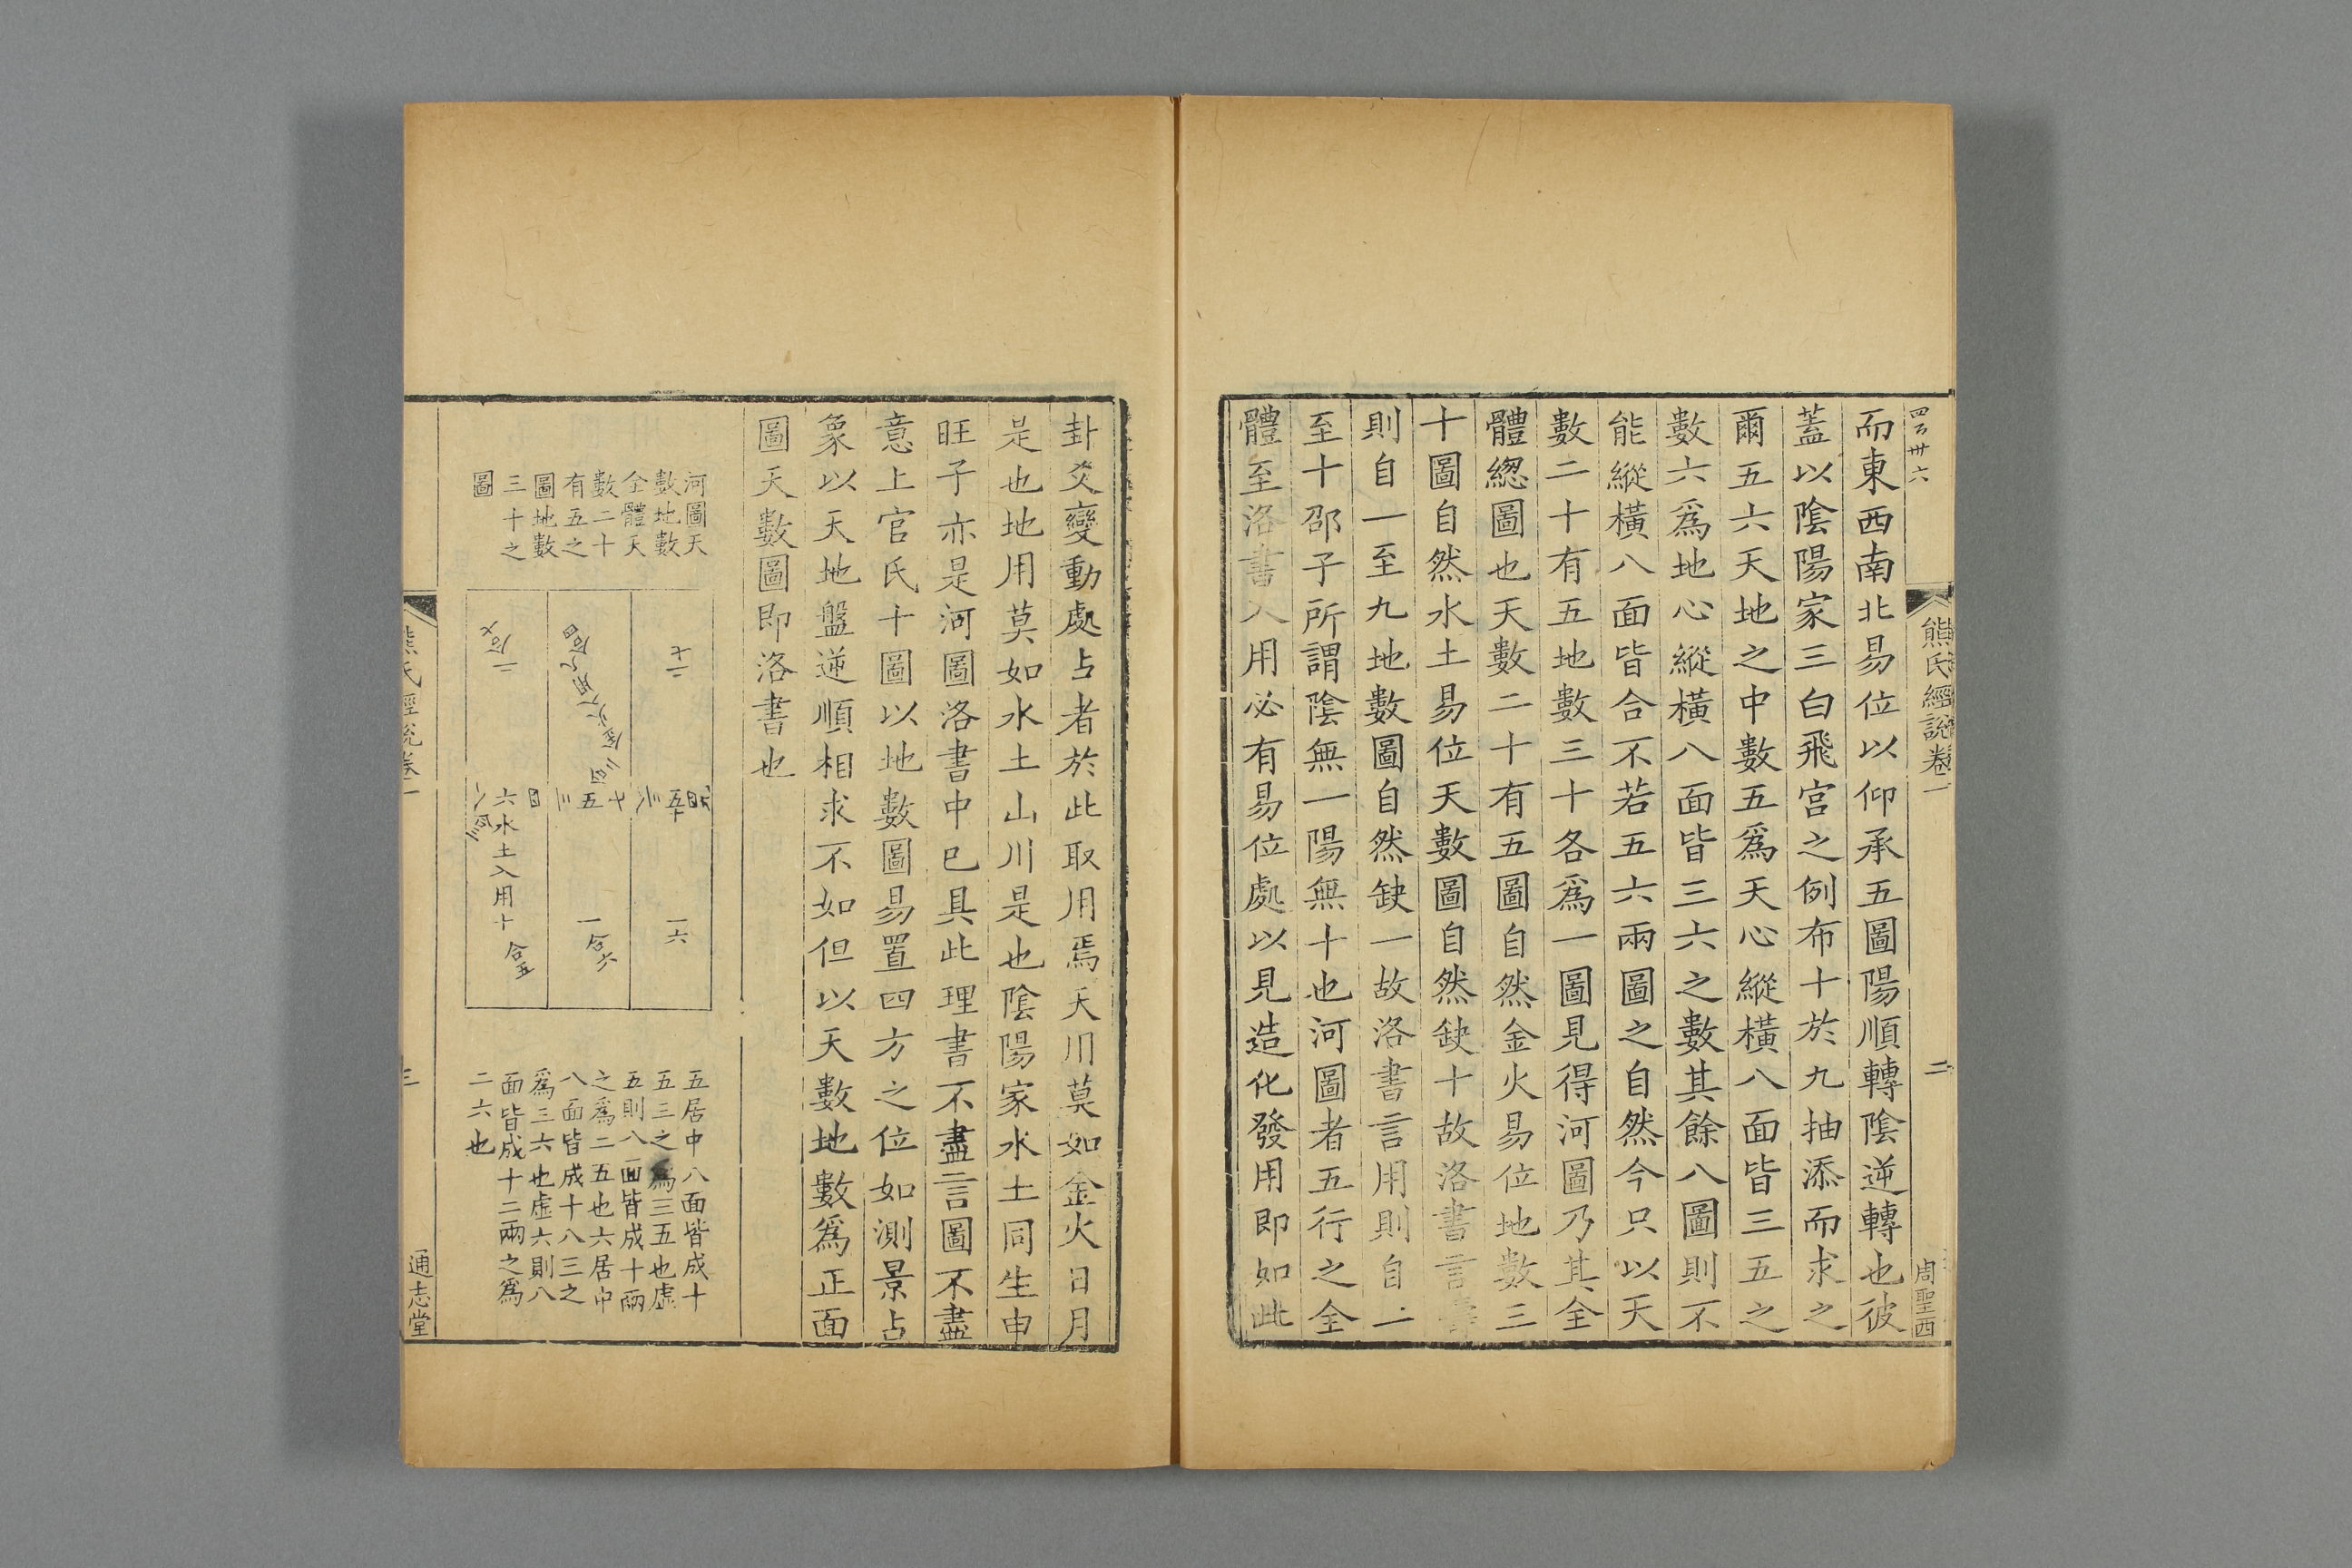 四百卅六
熊氏經說卷一
二
周聖西
而東西南北易位以仰承五圖陽順轉陰逆轉也彼
蓋以陰陽家三白飛宮之例布十於九抽添而求之
爾五六天地之中數五爲天心縱橫八面皆三五之
數六爲地心縱橫八面皆三六之數其餘八圖則不
能縱橫八面皆合不若五六兩圖之自然今只以天
數二十有五地數三十各爲一圖見得河圖乃其全
體緫圖也天數二十有五圖自然金火易位地數三
十圖自然水土易位天數圖自然缺十故洛書言
則自一至九地數圖自然缺一故洛書言用則自二
至十邵子所謂陰無一陽無十也河圖者五行之全
體至洛書入用必有易位處以見造化發用即如此
卦爻變動處占者於此取用焉天用莫如金火日月
是也地用莫如水土山川是也陰陽家水土同生申
旺子亦是河圖洛書中已具此理書不盡言圖不盡
意上官氏十圖以地數圖易置四方之位如測景占
象以天地盤逆順相求不如但以天數地數爲正面
圖天數圖即洛書也
河圖天
數地數
全體天
數二十
有五之
圖地數
三十之
圖
二七
五十
一六
十五
一合六
六水土入用十
合五
五居中八面皆成十
五三之爲三五也虛
五則八面皆成十兩
之爲二五也六居中
八面皆成十八三之
爲三六也虛六則八
面皆成十二兩之爲
二六也
熊氏經說卷一
三
通志堂